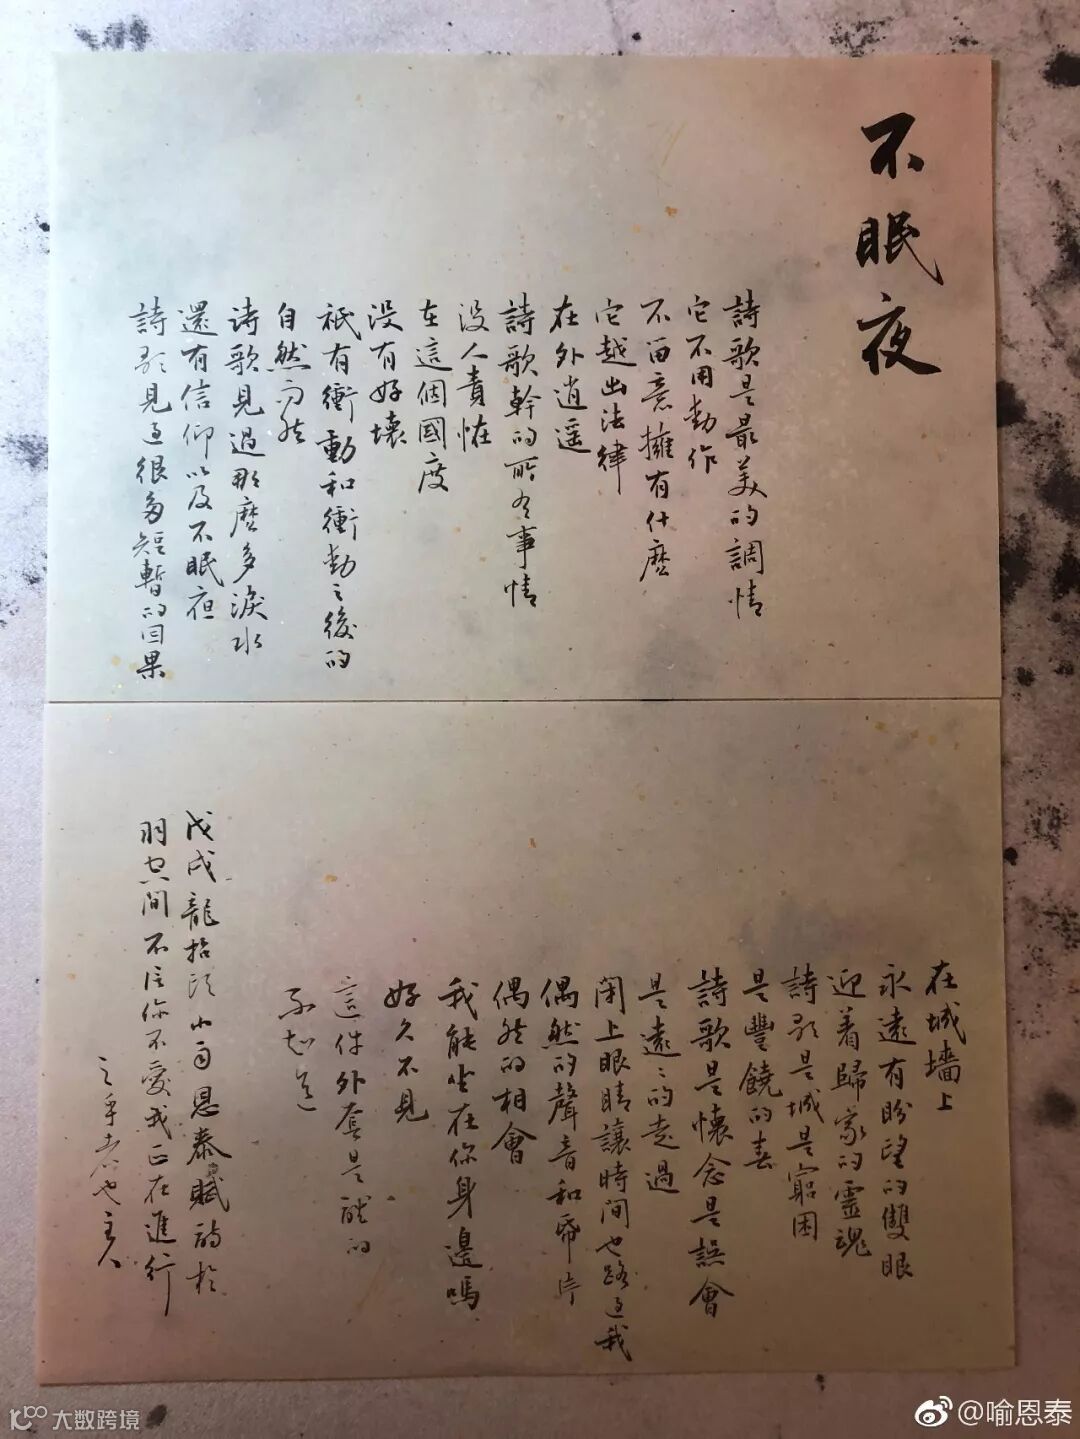 不眠夜
詩歌是最美的調情
它不用動作
不留意擁有什麼
它越出法律
在外逍遥
詩歌幹的所有事情
没人責怪
在這個國度
没有好壞
祇有衝動和衝動之後的
自然而然
诗歌見過那麼多淚水
還有信仰以及不眠夜
詩歌見過很多短暫的因果
在城墻上
永遠有盼望的雙眼
迎着歸家的靈魂
詩歌是城是窮困
是豐饒的春
詩歌是懷念是誤會
是遠遠的走過
閉上眼睛讓時間也路過我
偶然的聲音和帶片
偶然的相會
我能坐在你身邊嗎
好久不見
這件外套是誰的
不知道
戊戌龍抬頭小雨恩泰賦詩於
羽空間不信你不愛我正在進行
之乎者也主人
大数跨境
@喻恩泰